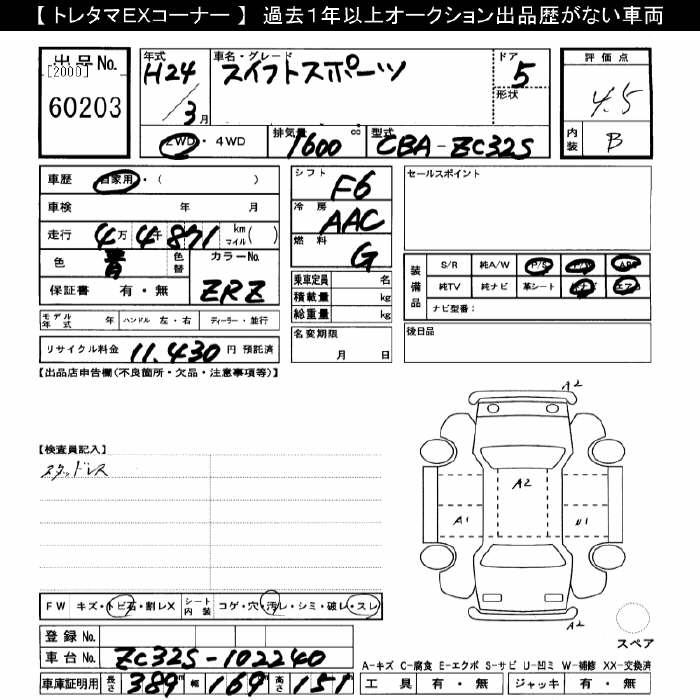 【 トレタマEXコーナー 】 過去1年以上オークション出品歴がない車両
出品No.
[2000]
60203
年式
H24/3月
車名・グレード
スイフトスポーツ
ドア
5
形状
評価点
4.5
内装 B
2WD ・ 4WD
排気量 1600 cc
型式 CBA-ZC32S
車歴 自家用・( )
車検 年 月
走行 4万4千871 km マイル( )
色 青 色替
カラーNo. ZRZ
保証書 有・無
シフト F6
冷房 AAC
燃料 G
乗車定員 名
積載量 kg
総重量 kg
セールスポイント
装備品
S/R 純A/W P/S P/W ABS
純TV 純ナビ 革シート エアB
ナビ型番：
モデル年式 年 ハンドル 左・右 ディーラー・並行
名変期限 月 日
後日品
リサイクル料金 11,430 円 預託済
【出品店申告欄(不良箇所・欠品・注意事項等)】
【検査員記入】
スタッドレス
A2
A2
A1
U1
FW キズ・トビ石・割レX
シート内装 コゲ・穴・汚レ・シミ・破レ・スレ
登録No.
車台No. ZC32S-102240
車庫証明用 長さ 389 幅 169 高さ 151
スペア
A-キズ C-腐食 E-エクボ S-サビ U-凹ミ W-補修 XX-交換済
工具 有・無 ジャッキ 有・無